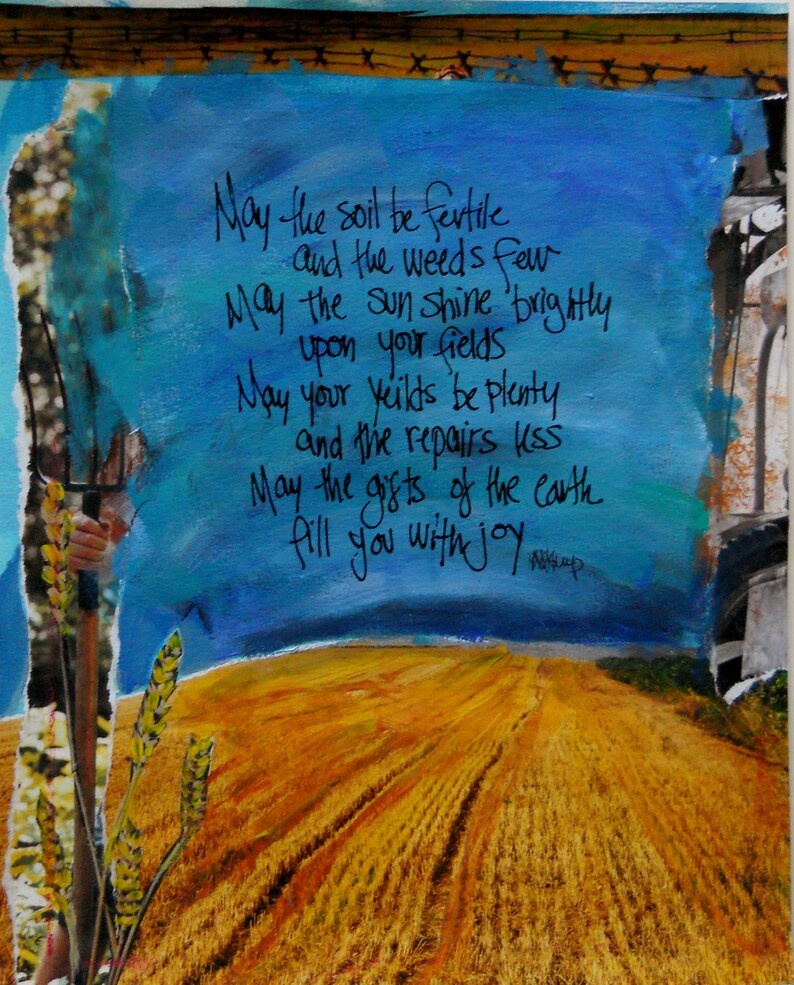 May the soil be fertile
and the weeds few
May the sun shine brightly
upon your fields
May your yeilds be plenty
and the repairs less
May the gifts of the earth
fill you with joy